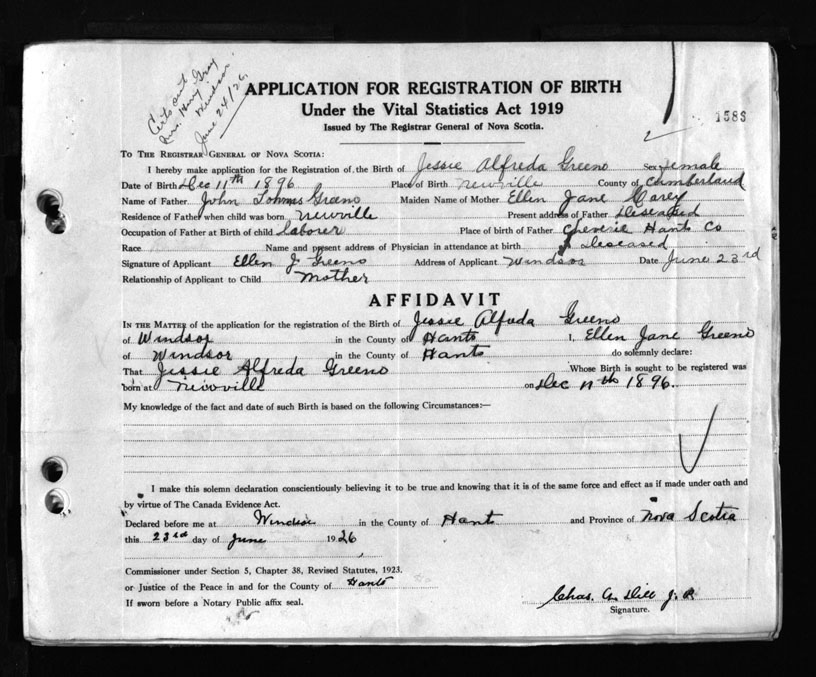 Certs out
Mrs. Henry Gray
Windsor
June 24/26.
APPLICATION FOR REGISTRATION OF BIRTH
Under the Vital Statistics Act 1919
Issued by The Registrar General of Nova Scotia.
1583
TO THE REGISTRAR GENERAL OF NOVA SCOTIA:
I hereby make application for the Registration of the Birth of Jessie Alfreda Greeno Sex Female
Date of Birth Dec 11th 1896 Place of Birth Newville County of Cumberland
Name of Father John Greeno Maiden Name of Mother Ellen Jane Carey
Residence of Father when child was born Newville Present address of Father Deseased
Occupation of Father at Birth of child laborer Place of birth of Father Cheverie Hants Co
Race Name and present address of Physician in attendance at birth Deseased
Signature of Applicant Ellen J Greeno Address of Applicant Windsor Date June 23rd
Relationship of Applicant to Child Mother
AFFIDAVIT
IN THE MATTER of the application for the registration of the Birth of Jessie Alfreda Greeno
of Windsor in the County of Hants I, Ellen Jane Greeno
of Windsor in the County of Hants do solemnly declare:
That Jessie Alfreda Greeno Whose Birth is sought to be registered was
born at Newville on Dec 11th 1896.
My knowledge of the fact and date of such Birth is based on the following Circumstances:—
I make this solemn declaration conscientiously believing it to be true and knowing that it is of the same force and effect as if made under oath and
by virtue of The Canada Evidence Act.
Declared before me at Windsor in the County of Hants and Province of Nova Scotia
this 23rd day of June 1926
Commissioner under Section 5, Chapter 38, Revised Statutes, 1923.
or Justice of the Peace in and for the County of Hants
If sworn before a Notary Public affix seal.
Chas. A. Dill J. P.
Signature.